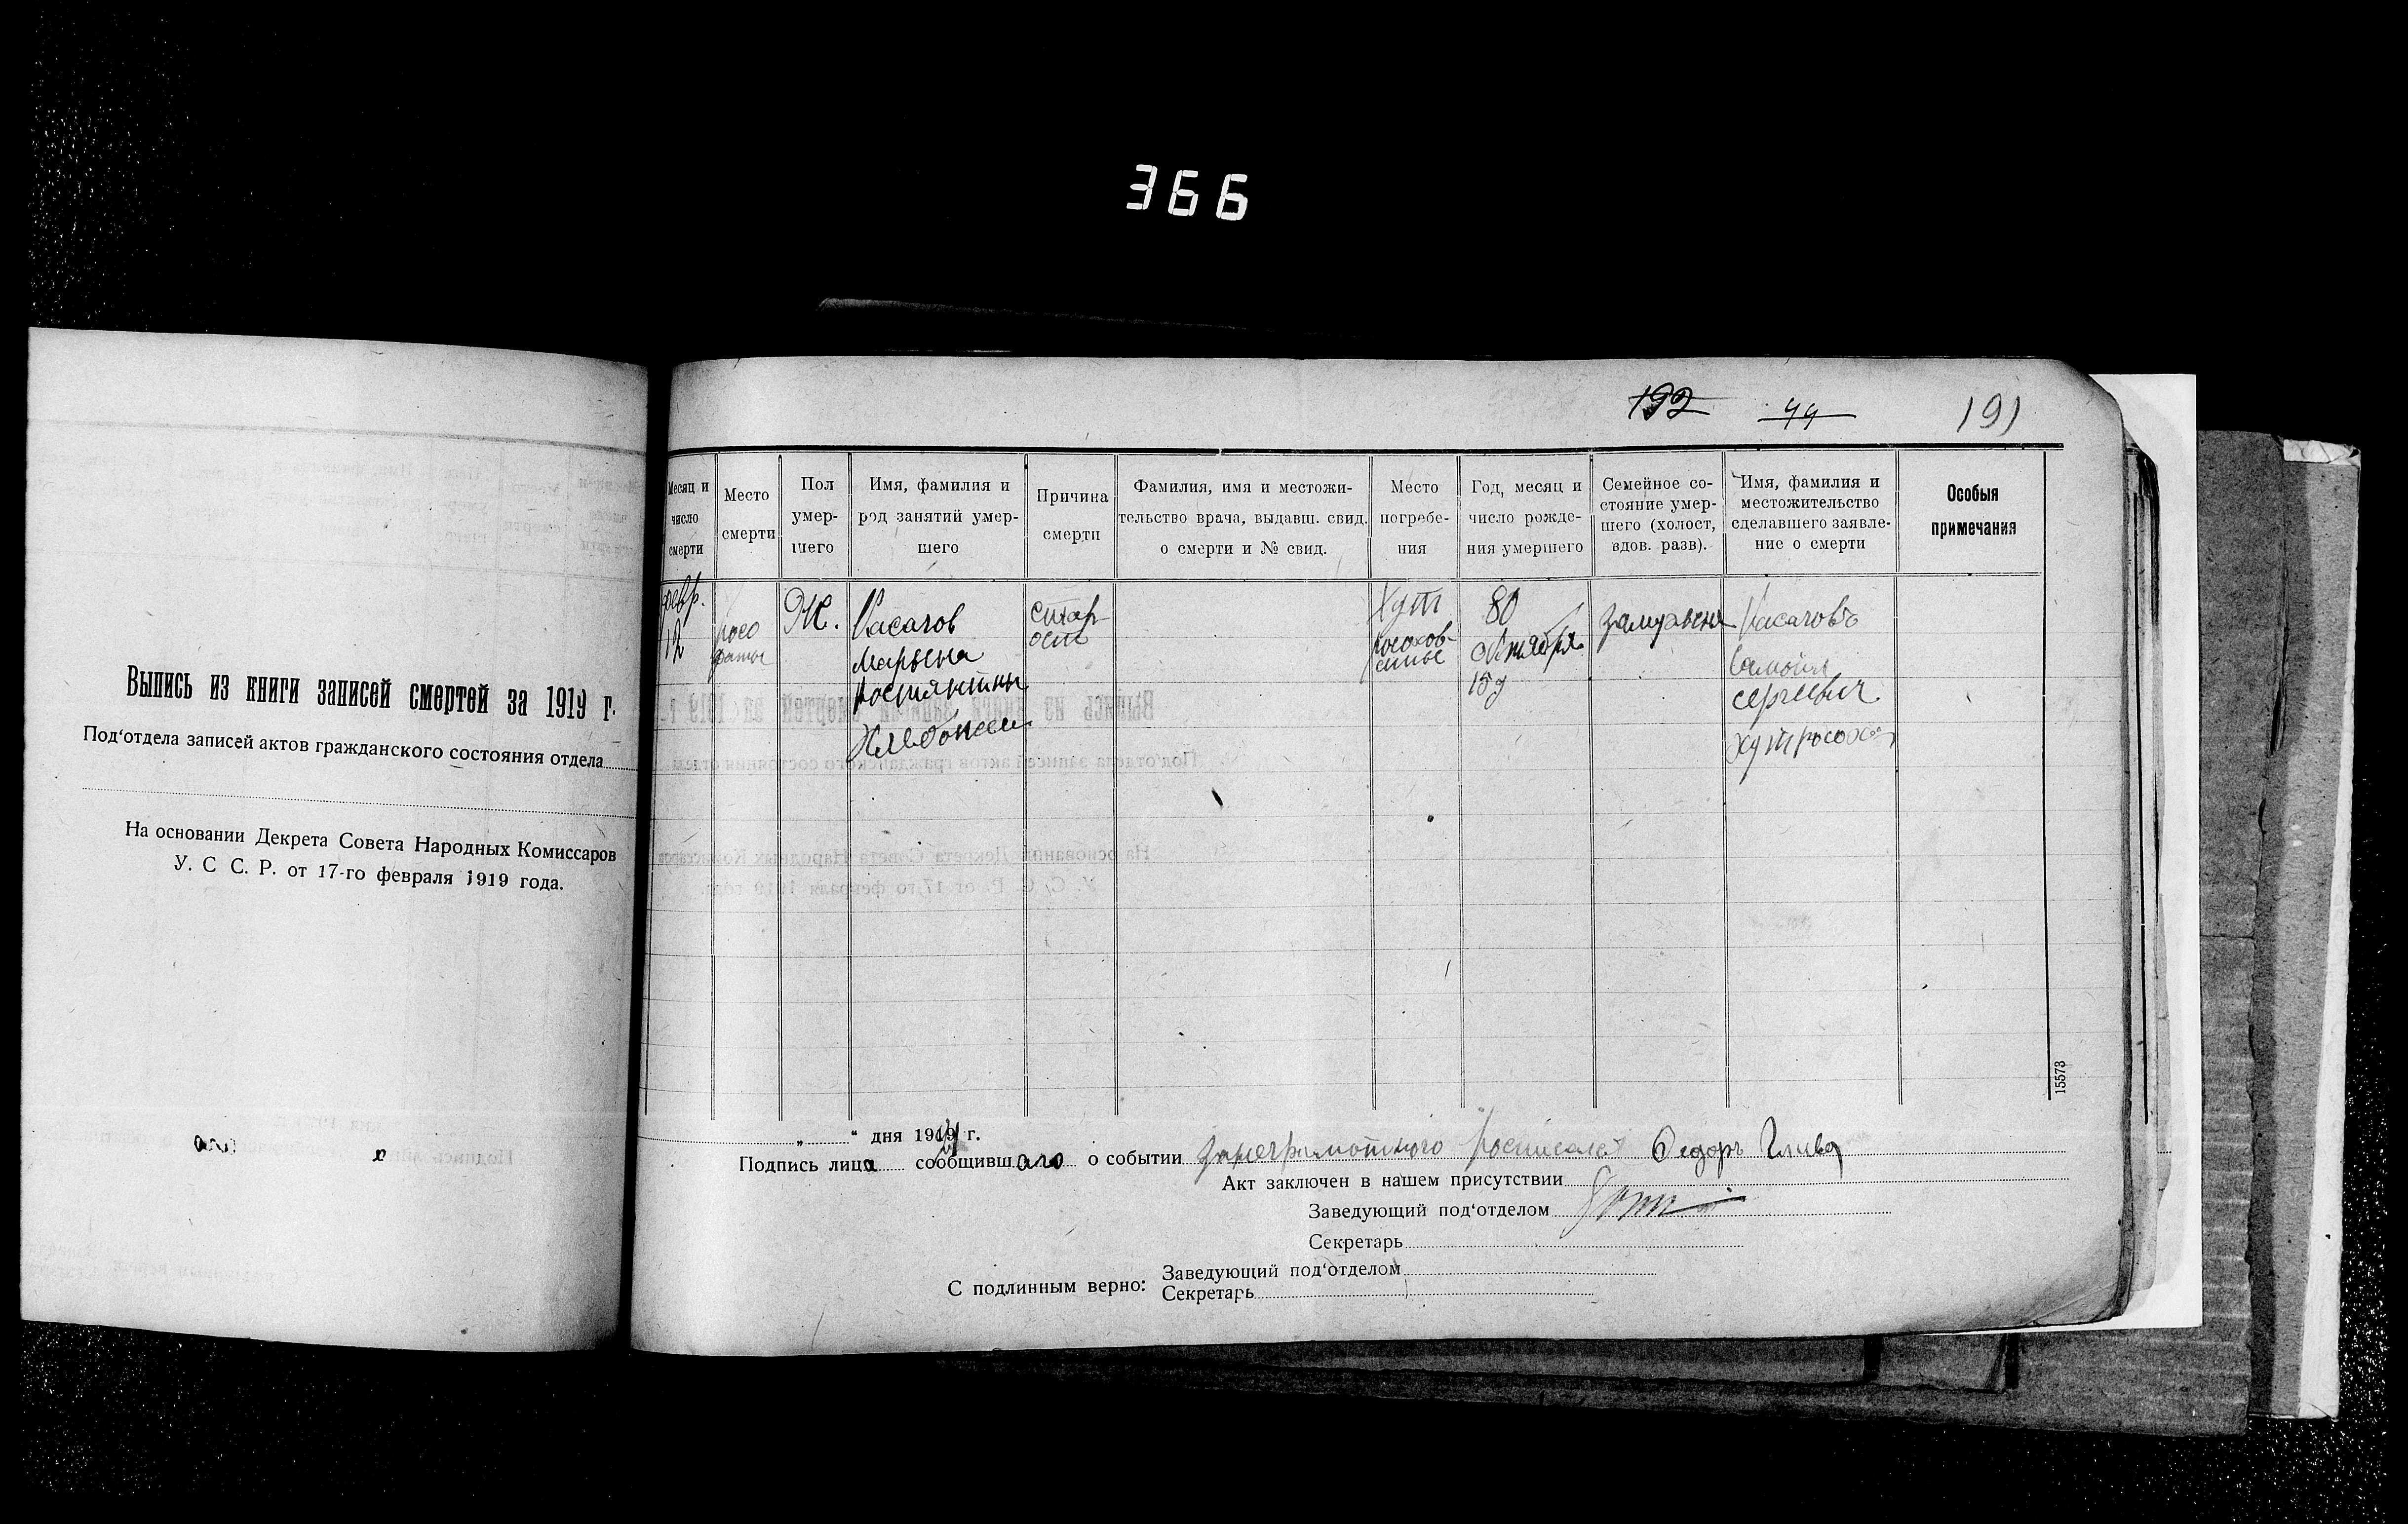 366
Выпись из книги записей смертей за 1919 г.
Под‘отдела записей актов гражданского состояния отдела
На основании Декрета Совета Народных Комиссаров
У. С С. Р. от 17-го февраля 1919 года.
192 44 191
Месяц и число смерти
Место смерти
Пол умер-
шего
Имя, фамилия и
род занятий умер-
шего
Причина
смерти
Фамилия, имя и местожи-
тельство врача, выдавш. свид.
о смерти и № свид.
Место
погребе-
ния
Год, месяц и
число рожде-
ния умершего
Семейное со-
стояние умер-
шего (холост,
вдов. разв).
Имя, фамилия и
местожительство
сделавшего заявле-
ние о смерти
Особыя
примечания
февр.
12
Ж.
Касачов
Марьена
Хлебопаш
Стар-
ость
Хут
80
Октября
15 д
замужняя
Касачовъ
Самойл
Сергеевич
хут
15573
„ “ дня 1919 г.
Подпись лица сообщившаго о событии Федоръ
Акт заключен в нашем присутствии
Заведующий под‘отделом
Секретарь
С подлинным верно: Заведующий под‘отделом
Секретарь